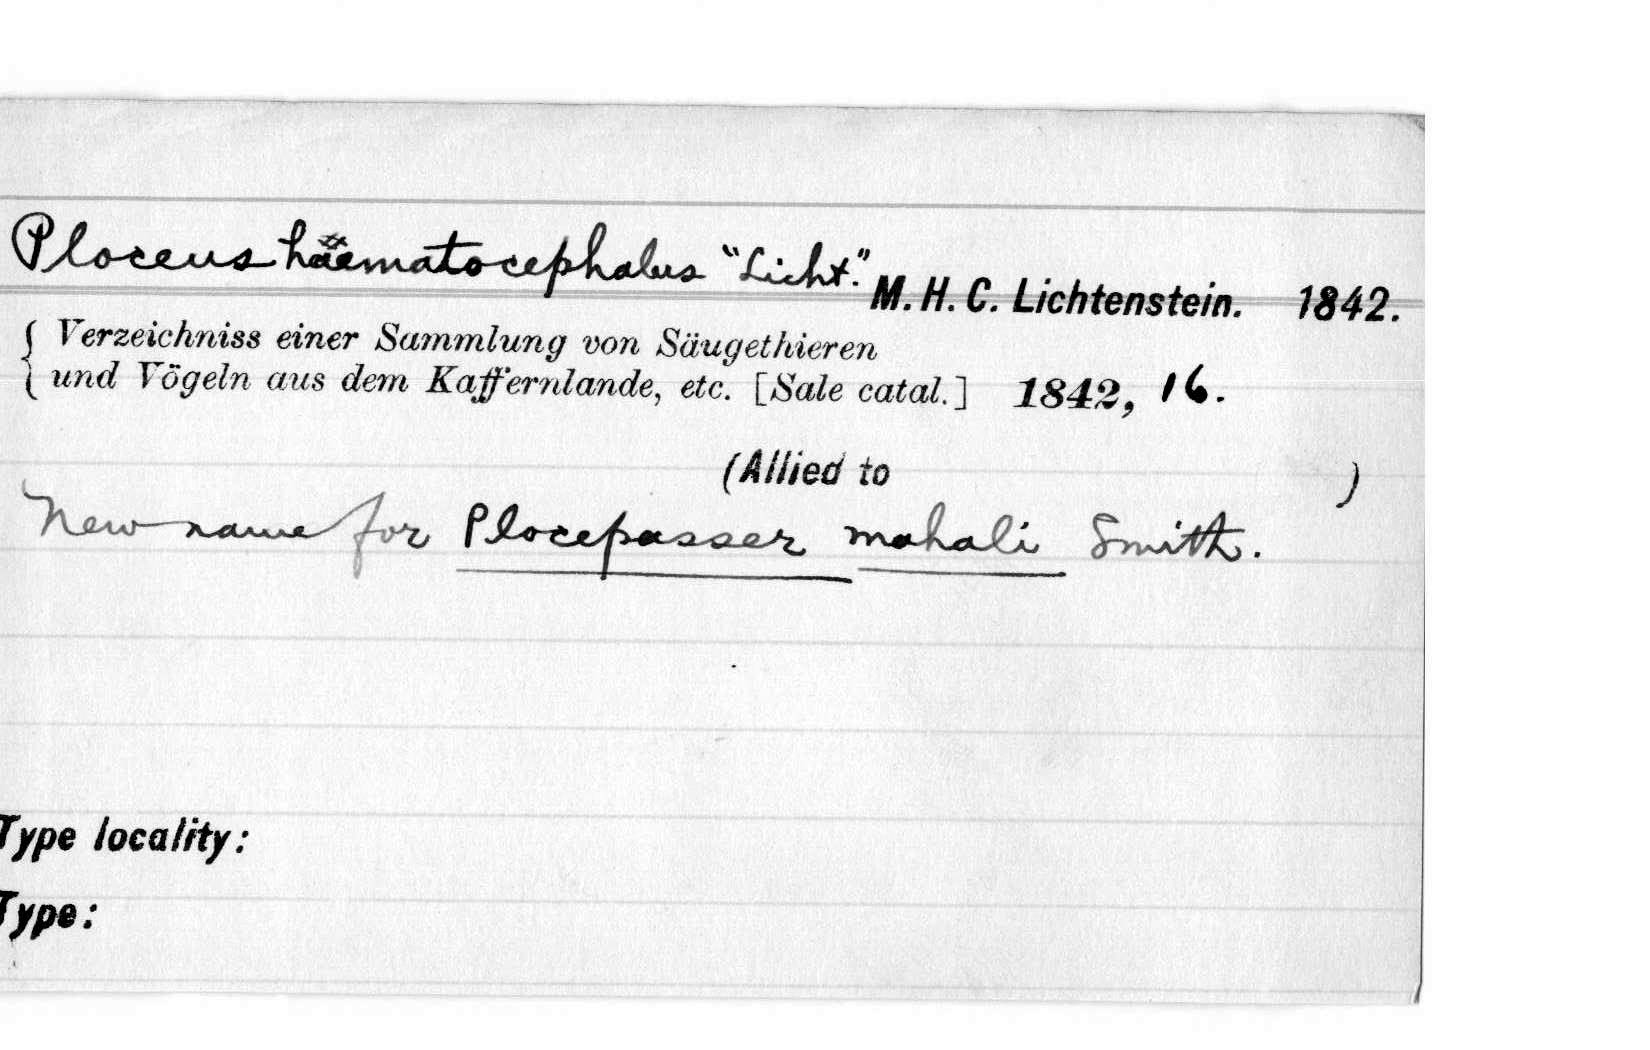 Ploceus haematocephalus "Licht." M. H. C. Lichtenstein. 1842.
{ Verzeichniss einer Sammlung von Säugethieren
und Vögeln aus dem Kaffernlande, etc. [Sale catal.] 1842, 16.
(Allied to )
New name for Plocepasser mahali Smith.
Type locality:
Type: